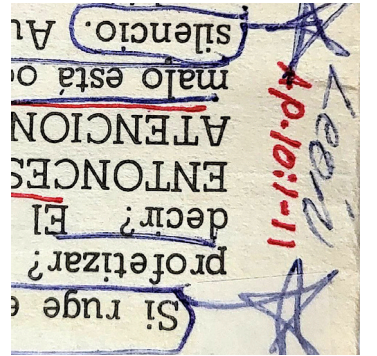 Si ruge e
profetizar?
decir? El
ENTONCES
ATENCION
malo está o
silencio. Au
León
Ap. 10:1-11